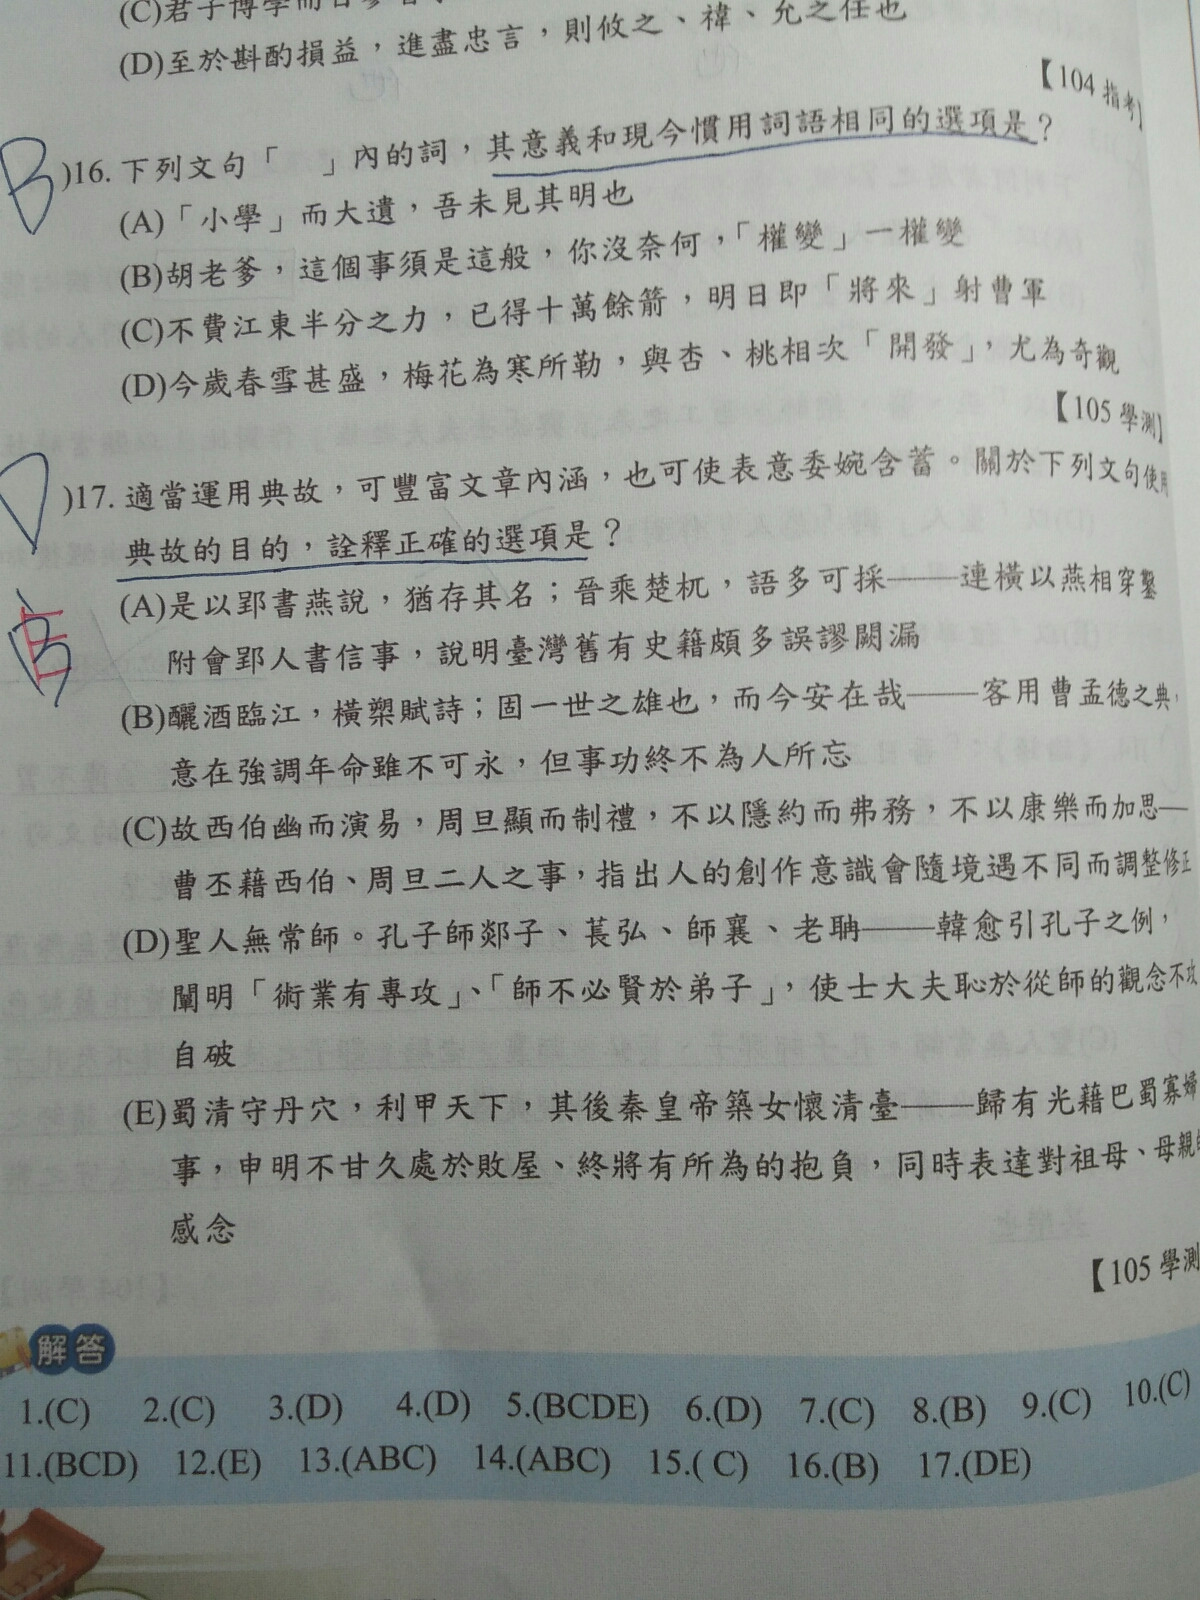 (C)君子博學而日參省
(D)至於斟酌損益，進盡忠言，則攸之、禕、允之任也
【104 指考】
B )16. 下列文句「　」內的詞，其意義和現今慣用詞語相同的選項是？
(A)「小學」而大遺，吾未見其明也
(B)胡老爹，這個事須是這般，你沒奈何，「權變」一權變
(C)不費江東半分之力，已得十萬餘箭，明日即「將來」射曹軍
(D)今歲春雪甚盛，梅花為寒所勒，與杏、桃相次「開發」，尤為奇觀
【105 學測】
D )17. 適當運用典故，可豐富文章內涵，也可使表意委婉含蓄。關於下列文句使用
典故的目的，詮釋正確的選項是？
(A)是以郢書燕說，猶存其名；晉乘楚杌，語多可採——連橫以燕相穿鑿
附會郢人書信事，說明臺灣舊有史籍頗多誤謬闕漏
(B)釃酒臨江，橫槊賦詩；固一世之雄也，而今安在哉——客用曹孟德之典，
意在強調年命雖不可永，但事功終不為人所忘
(C)故西伯幽而演易，周旦顯而制禮，不以隱約而弗務，不以康樂而加思—
曹丕藉西伯、周旦二人之事，指出人的創作意識會隨境遇不同而調整修正
(D)聖人無常師。孔子師郯子、萇弘、師襄、老聃——韓愈引孔子之例，
闡明「術業有專攻」、「師不必賢於弟子」，使士大夫恥於從師的觀念不攻
自破
E
(E)蜀清守丹穴，利甲天下，其後秦皇帝築女懷清臺——歸有光藉巴蜀寡婦
事，申明不甘久處於敗屋、終將有所為的抱負，同時表達對祖母、母親的
感念
【105 學測
解答
1.(C) 2.(C) 3.(D) 4.(D) 5.(BCDE) 6.(D) 7.(C) 8.(B) 9.(C) 10.(C)
11.(BCD) 12.(E) 13.(ABC) 14.(ABC) 15.( C) 16.(B) 17.(DE)